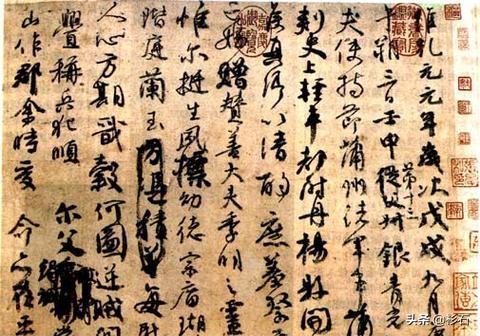 維乾元元年歲次戊戌九月
午朔三日壬申第十三從父叔銀青光
夫使持節蒲州諸軍事蒲
刺史上輕車都尉丹楊縣開
侯真卿以清酌庶羞祭
亡姪贈贊善大夫季明之靈
惟爾挺生夙標幼德宗廟瑚
階庭蘭玉方憑積善每
人心方期戩穀何圖逆賊
釁稱兵犯順 爾父
山作郡余時受命亦在平
头条 @杉石